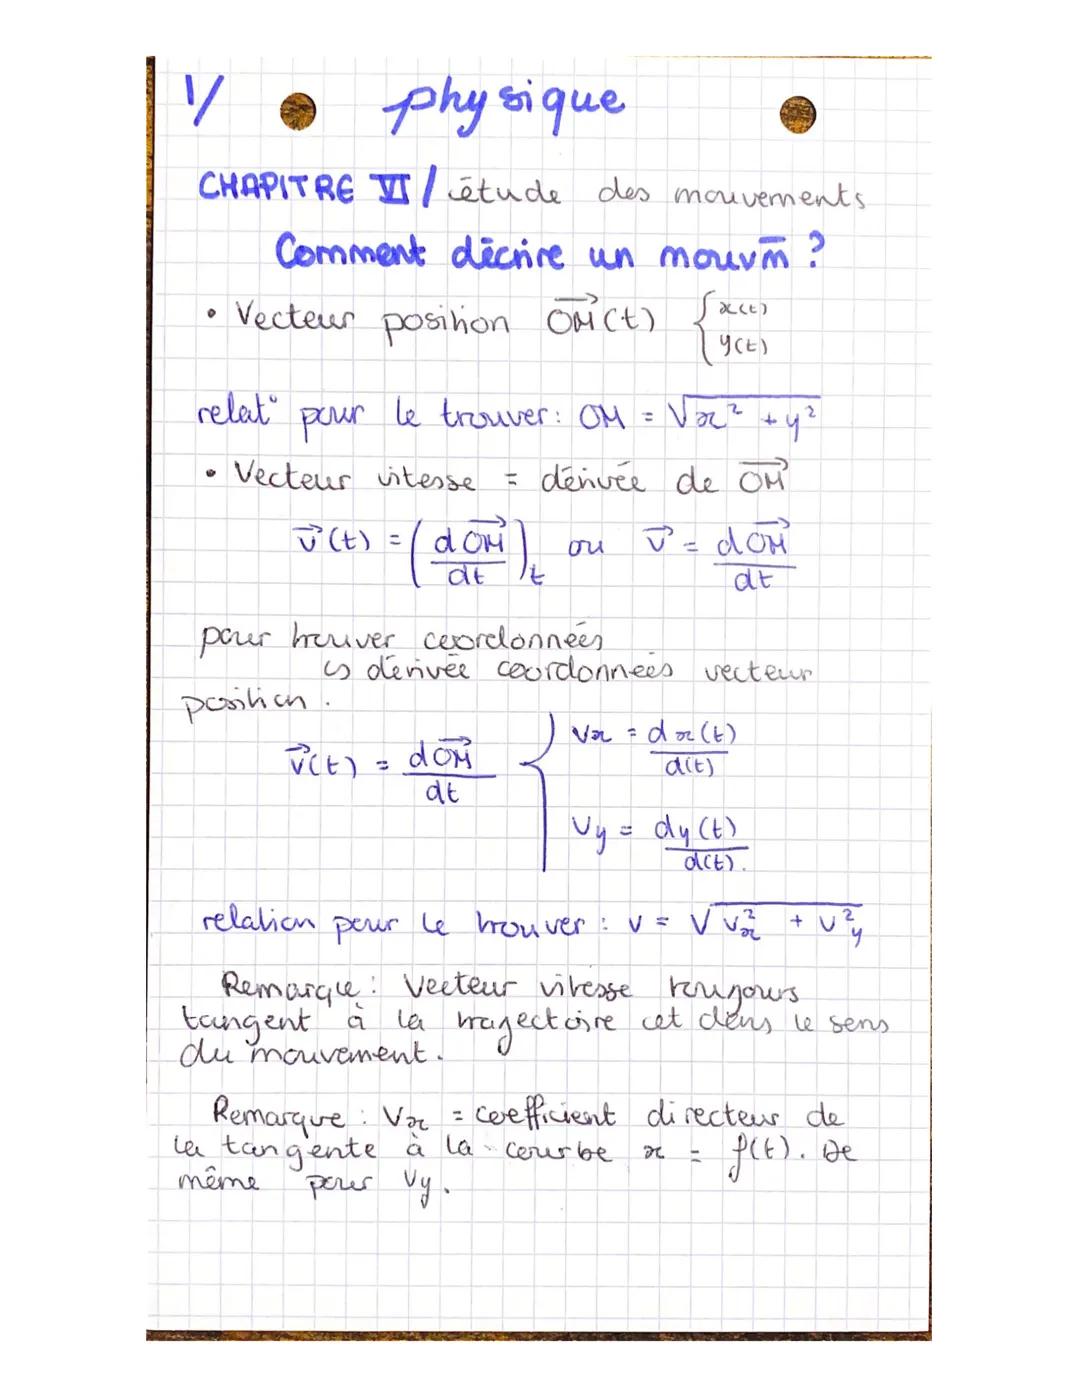 1/ physique
CHAPITRE VI / étude des mouvements
Comment décrire un mouvm̄ ?
• Vecteur position OM⃗(t) { x(t)
y(t)
relat° pour le trouver : OM = √x² + y²
• Vecteur vitesse = dérivée de OM⃗
v⃗(t) = (dOM⃗/dt)t ou v⃗ = dOM⃗/dt
pour trouver coordonnées
↳ dérivée coordonnées vecteur
position .
v⃗(t) = dOM⃗/dt { Vx = dx(t)/d(t)
Vy = dy(t)/d(t) .
relation pour le trouver : v = √vx² + vy²
Remarque : Vecteur vitesse toujours
tangent à la trajectoire et dans le sens
du mouvement .
Remarque : Vx = coefficient directeur de
la tangente à la courbe x = f(t). De
même pour Vy .